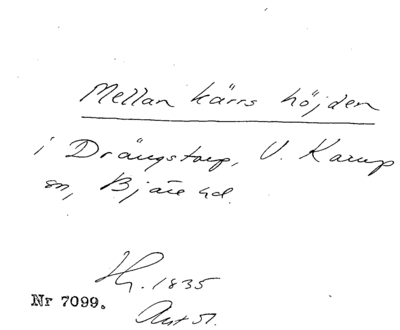 Mellan kärrs höjden
i Drängstorp, V. Karup
sn, Bjäre hd.
Hg. 1835
Nr 7099.
Ant 51.